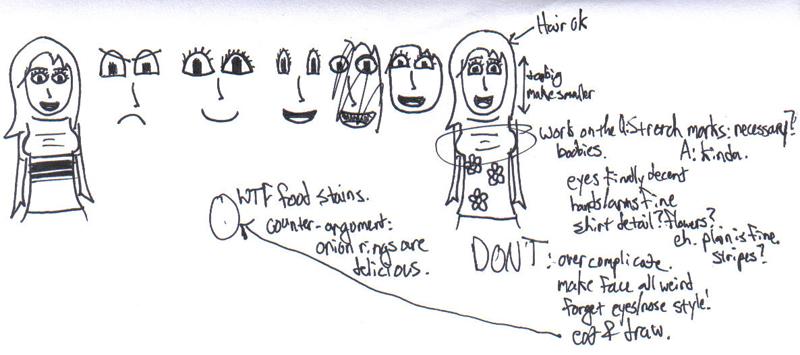 Hair ok
too big
make smaller
work on the
boobies.
Q: Stretch marks: necessary?
A: kinda.
eyes finally decent
hands/arms fine
shirt detail? flowers?
eh. plain is fine.
stripes?
WTF food stains.
counter-argument:
onion rings are
delicious.
DON'T: overcomplicate.
make face all weird
forget eyes/nose style!
eat & draw.